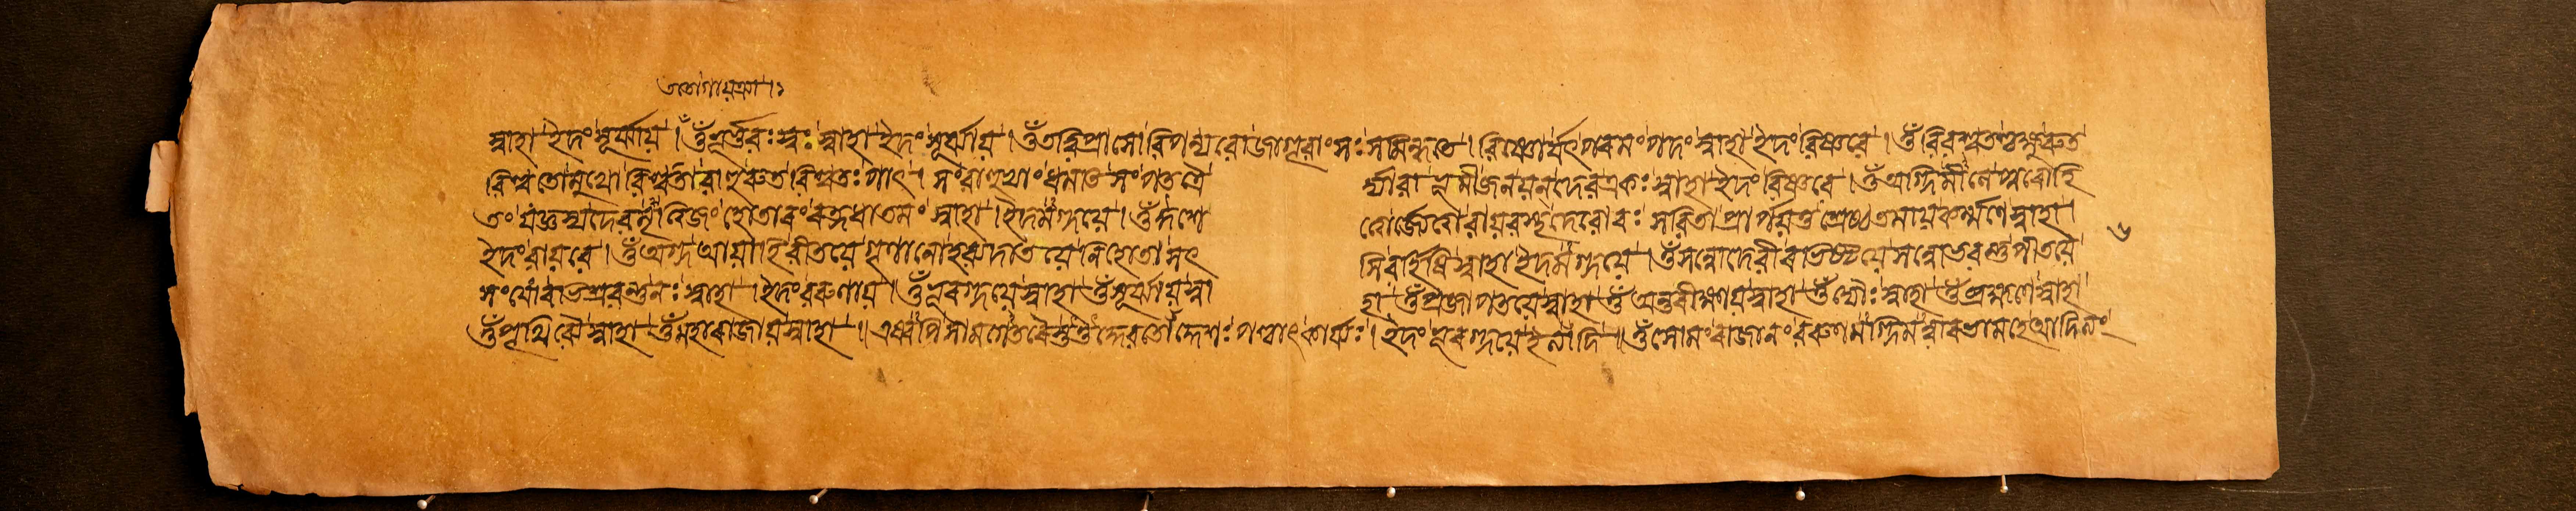 ততোগায়ত্র্যা । ১
স্বাহা ইদং সূর্য্যায় । ওঁ ভূর্ভুবঃ স্বঃ স্বাহা ইদং সূর্য্যায় । ওঁ তদ্বিপ্রাসো বিপন্যবো জাগৃবাংসঃ সমিন্ধতে । বিষ্ণোর্যৎ পৰমং পদং স্বাহা ইদং বিষ্ণবে । ওঁ বিশ্বতশ্চক্ষুৰুত
বিশ্বতোমুখো বিশ্বতোবাহুৰুত বিশ্বতঃ পাৎ । সংবাহুভ্যাং ধমতি সংপতত্রৈ র্দ্যাবাভূমী জনয়ন্ দেব একঃ স্বাহা ইদং বিষ্ণবে । ওঁ অগ্নিমীলে পুৰোহি
তং যজ্ঞস্য দেবমৃত্বিজং হোতাৰং ৰত্নধাতমং স্বাহা । ইদমগ্নয়ে । ওঁ ইষে ত্বোর্জেত্বা বায়বস্থ দেবো বঃ সবিতা প্রার্পয়তু শ্রেষ্ঠতমায় কর্ম্মণে স্বাহা । ৬
ইদং বায়বে । ওঁ অগ্ন আয়াহি বীতয়ে গৃণানো হব্যদাতয়ে নিহোতা সৎ সি বর্হিষি স্বাহা ইদমগ্নয়ে । ওঁ শন্নোদেবীৰভিষ্টয়ে শন্নো ভবন্তু পীতয়ে
শংযোৰভিস্রবন্তু নঃ স্বাহা । ইদং বৰুণায় । ওঁ ভূৰগ্নয়ে স্বাহা ওঁ সূর্য্যায় স্বা হা ওঁ প্রজাপতয়ে স্বাহা ওঁ অন্তৰীক্ষায় স্বাহা ওঁ দ্যৌঃ স্বাহা ওঁ ব্রহ্মণে স্বাহা
ওঁ পৃথিব্যৈ স্বাহা ওঁ মহাৰাজায় স্বাহা ॥ এষ্বপি সামগেতৰৈস্তু তদ্দেবতোদ্দেশঃ পশ্চাৎ কার্যঃ । ইদং ভূৰগ্নয়ে ইত্যাদি ॥ ওঁ সোমং ৰাজানং বৰুণমগ্নিমন্বাৰভামহে আদিত্যং